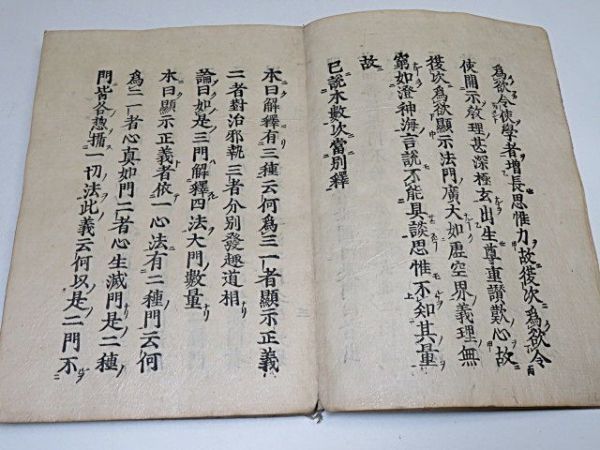 爲欲令使學者增長思惟力故復次爲欲令
使開示敎理甚深極玄出生尊重讚歎心故
復次爲欲顯示法門廣大如虛空界義理無
窮如澄神海言說不能具談思惟不知其量
故
已說本數次當別釋
本曰解釋有三種云何爲三一者顯示正義
二者對治邪執三者分別發趣道相
論曰如是三門解釋四法大門數量
本曰顯示正義者依一心法有二種門云何
爲二一者心眞如門二者心生滅門是二種
門皆各揔攝一切法此義云何以是二門不